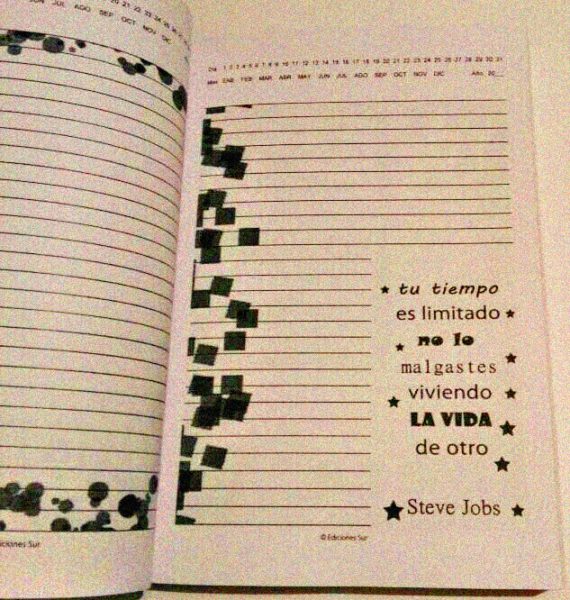 JUN JUL AGO SEP OCT NOV DIC
Día 1 2 3 4 5 6 7 8 9 10 11 12 13 14 15 16 17 18 19 20 21 22 23 24 25 26 27 28 29 30 31
Mes ENE FEB MAR ABR MAY JUN JUL AGO SEP OCT NOV DIC Año 20__
tu tiempo
es limitado
no lo
malgastes
viviendo
LA VIDA
de otro
Steve Jobs
ciones Sur
© Ediciones Sur